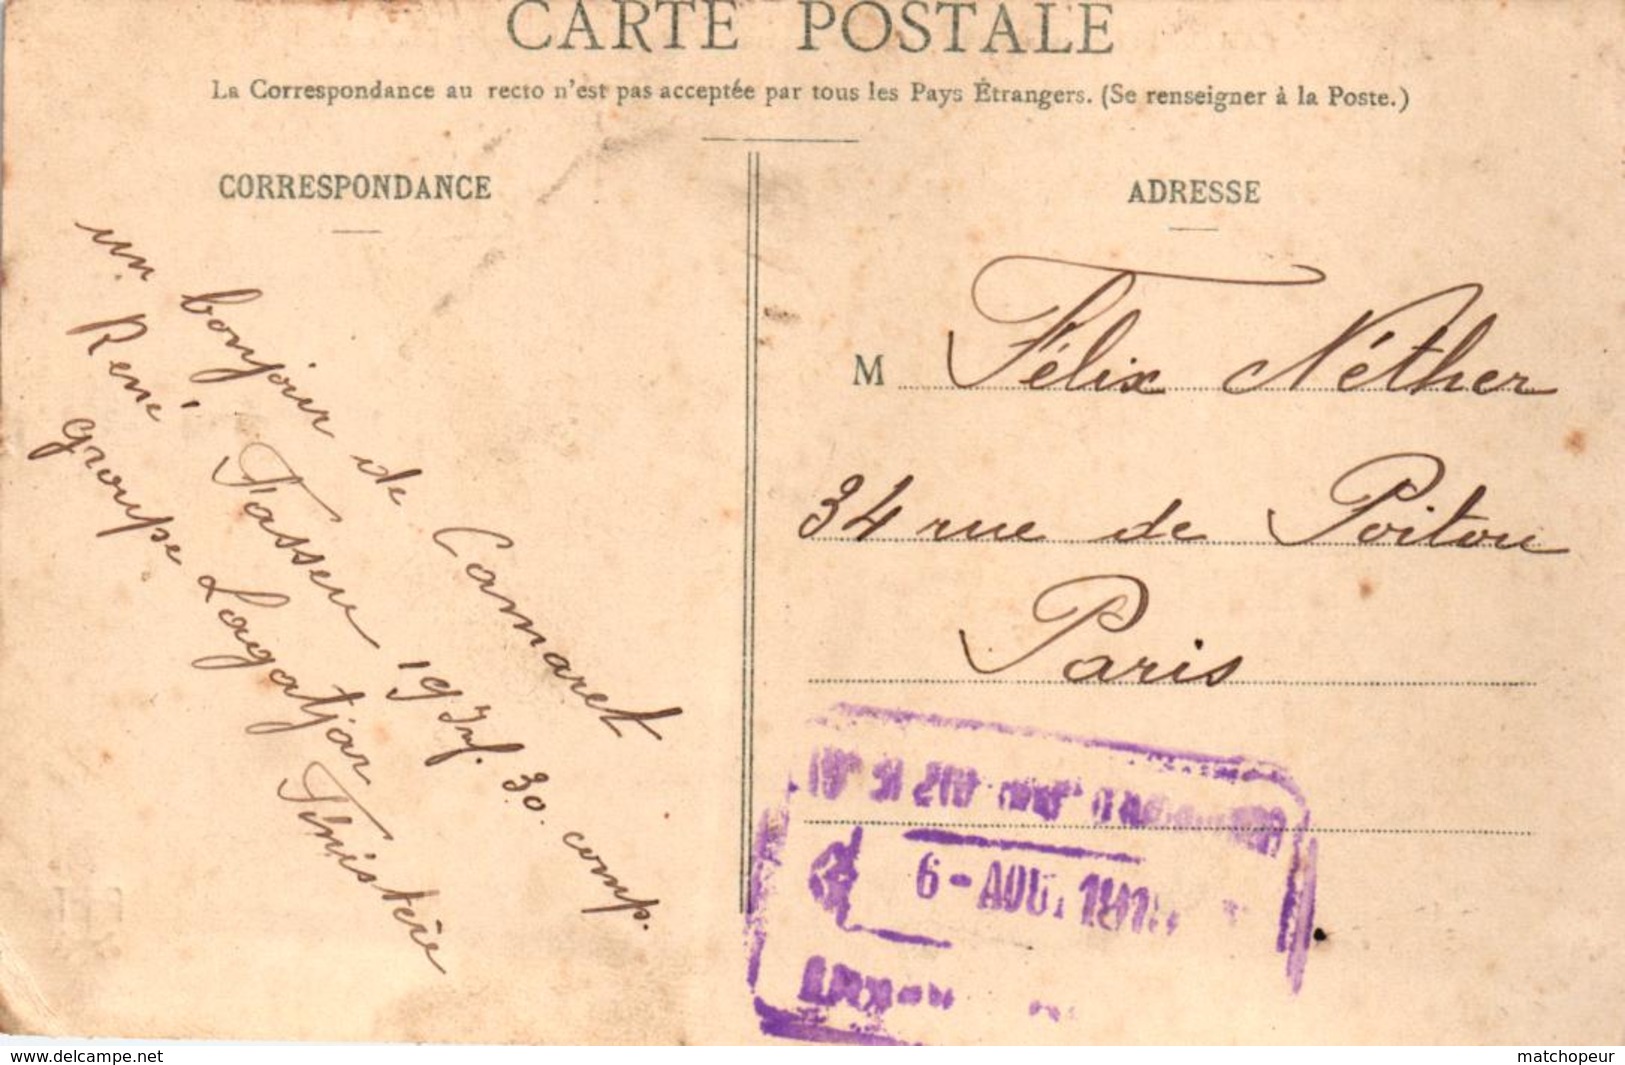 CARTE POSTALE
La Correspondance au recto n'est pas acceptée par tous les Pays Étrangers. (Se renseigner à la Poste.)
CORRESPONDANCE
un bonjour de Camaret
René Tasseu 19 Inf. 30. comp.
groupe Lagatjar Finistère
ADRESSE
M Félix Néther
34 rue de Poitou
Paris
6 - AOUT
www.delcampe.net
matchopeur